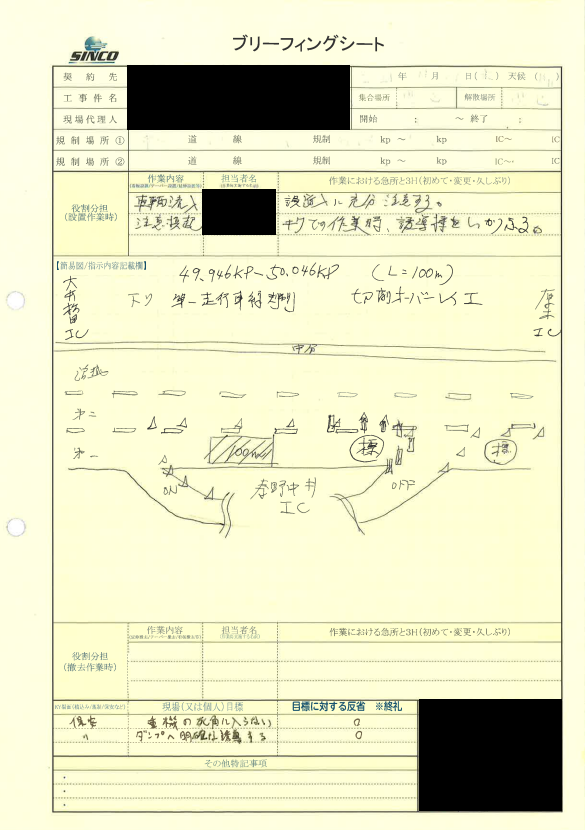 ブリーフィングシート
SINCO
契約先
年 月 日( ) 天候( )
工事件名
集合場所 解散場所
現場代理人
開始 : ～ 終了 :
規制場所① 道 線 規制 kp ～ kp IC～ IC
規制場所② 道 線 規制 kp ～ kp IC～ IC
役割分担
(設置作業時)
作業内容 担当者名 作業における急所と3H(初めて・変更・久しぶり)
車輌流入 誤流入に充分注意する。
注意喚起 での作業時、誘導棒をしっかりふる。
【簡易図/指示内容記載欄】
49.946KP～50.046KP (L=100m)
大井松田IC 下り 第一走行車線規制 切削オーバーレイ工 厚木IC
中分
追越
第二
第一
100m
標
標
ON
秦野中井
IC
OFF
役割分担
(撤去作業時)
作業内容 担当者名 作業における急所と3H(初めて・変更・久しぶり)
現場(又は個人)目標 目標に対する反省 ※終礼
保安 重機の死角に入らない ○
〃 ダンプへ明確な誘導する ○
その他特記事項
・
・
・